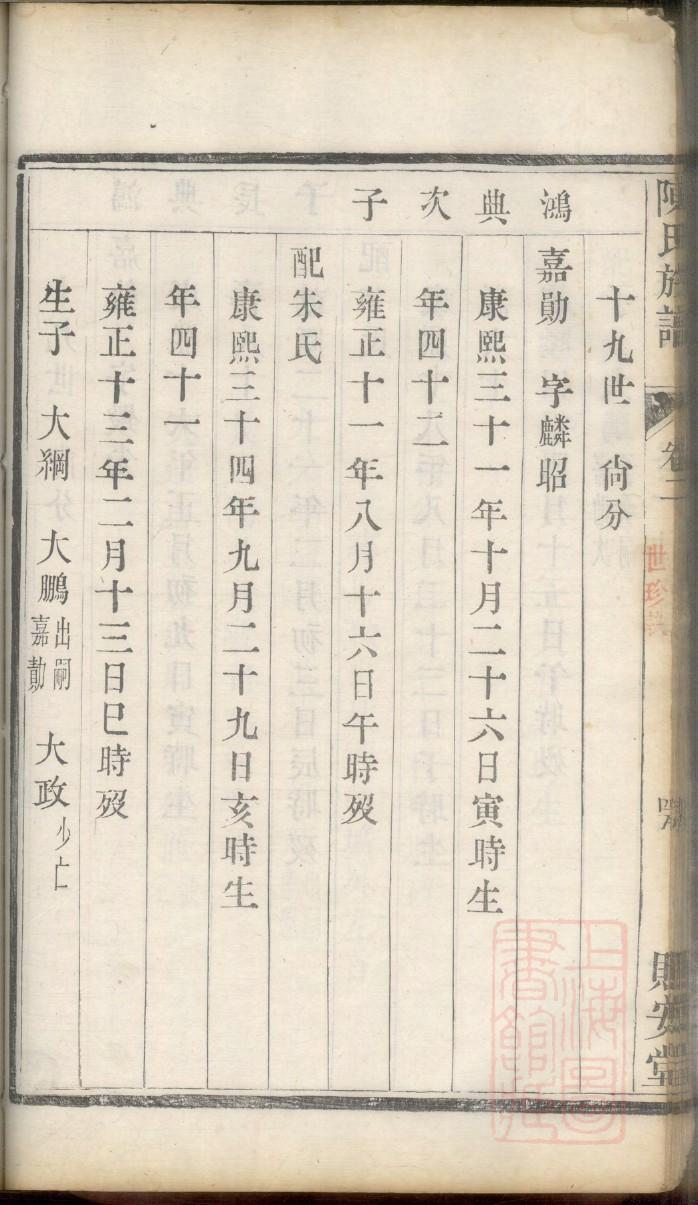 陳氏族譜
卷二
十九世 尙分
鴻典次子
嘉勛 字麟昭
康熙三十一年十月二十六日寅時生
年四十二
雍正十一年八月十六日午時歿
配朱氏
康熙三十四年九月二十九日亥時生
年四十一
雍正十三年二月十三日巳時歿
生子 大綱 大鵬 出嗣嘉勣 大政 少亡
上海圖書館藏